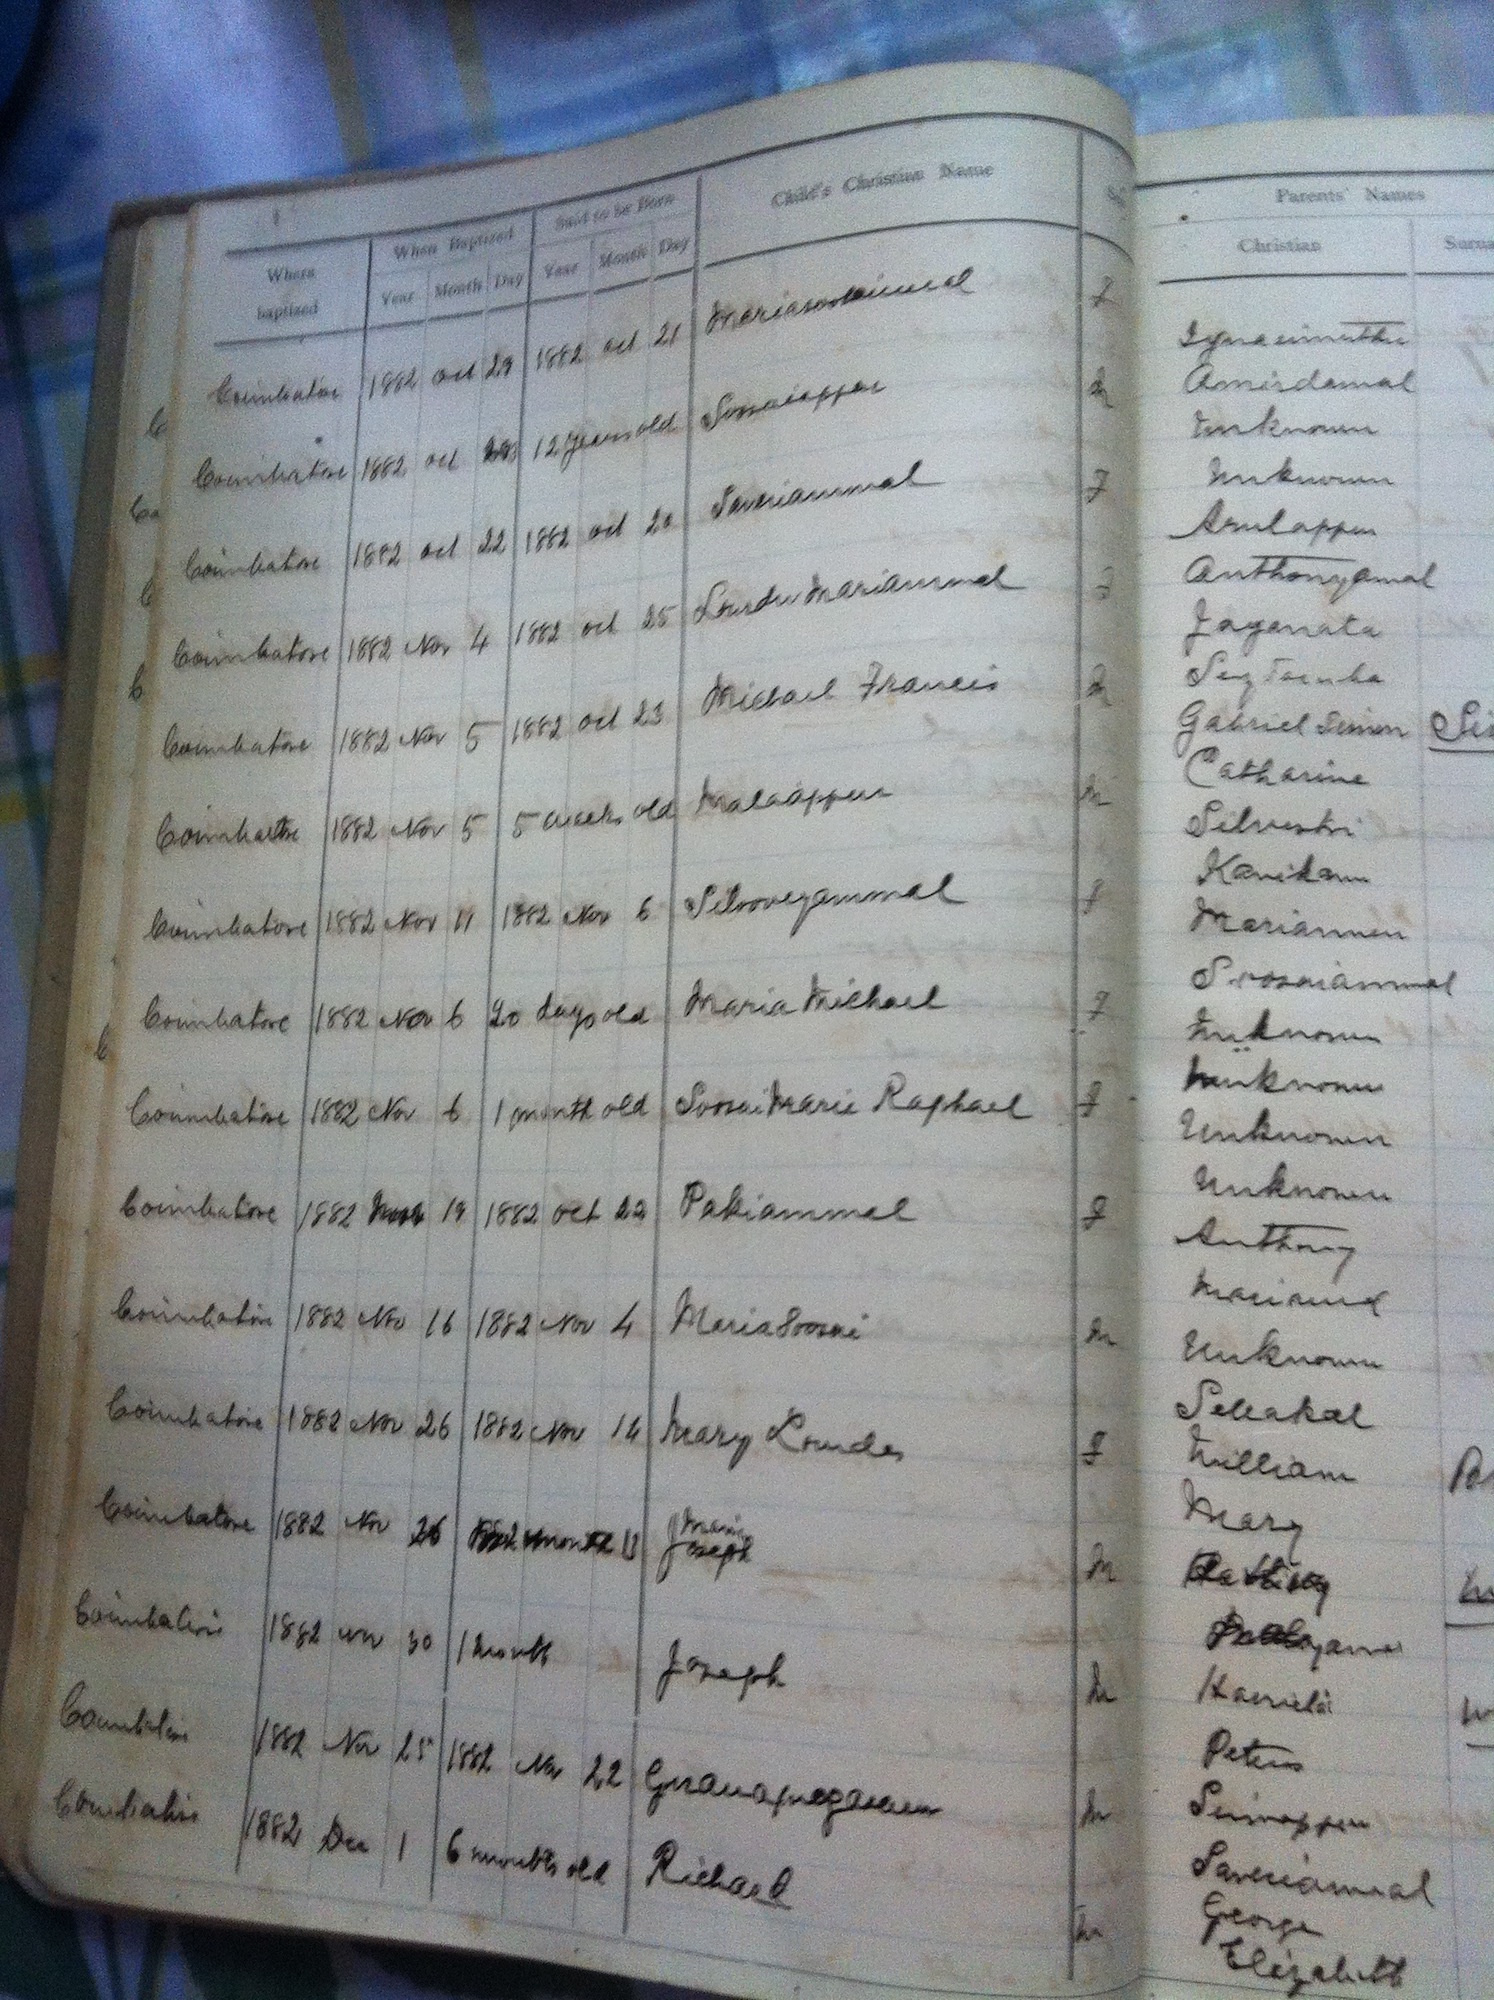 Where baptized | When Baptized | Said to be Born | Child's Christian Name | Sex | Parents' Names
Year Month Day | Year Month Day | Christian
Coimbatore 1882 oct 29 1882 oct 21 F
Amirdamal
Coimbatore 1882 oct 12 years old Soosaiappen M Unknown
Unknown
Coimbatore 1882 oct 22 1882 oct 20 Saveriammal F Arulappen
Anthonyamal
Coimbatore 1882 Nov 4 1882 oct 25 Lourdu Mariammal F Jaganata
Coimbatore 1882 Nov 5 1882 oct 23 Michael Francis M Gabriel Simon
Catharine
Coimbatore 1882 Nov 5 5 weeks old Malaappen M Silvestri
Coimbatore 1882 Nov 11 1882 Nov 6 Silooveyammal F Mariannen
Soosaiammal
Coimbatore 1882 Nov 6 20 days old Maria Michael F Unknown
Unknown
Coimbatore 1882 Nov 6 1 month old Soosai Marie Raphael F Unknown
Unknown
Coimbatore 1882 19 1882 oct 22 Pakiammal F Anthony
Coimbatore 1882 Nov 16 1882 Nov 4 Maria Soosai M Unknown
Coimbatore 1882 Nov 26 1882 Nov 14 Mary Lourdes F William
Mary
Coimbatore 1882 Nov 26 Joseph M
Coimbatore 1882 Nov 30 1 month Joseph M
Peters
Coimbatore 1882 Nov 25 1882 Nov 22 M Sinnappen
Saveriammal
Coimbatore 1882 Dec 1 6 months old Richard M George
Elizabeth